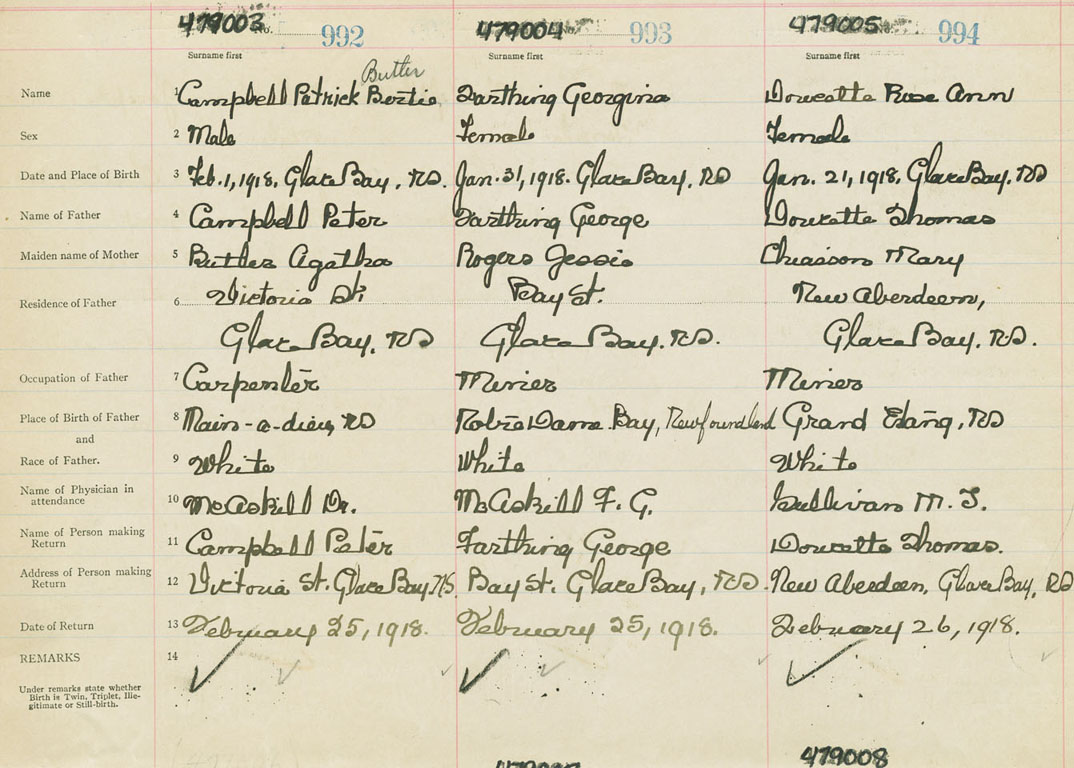 479003 No. 992 479004 No. 993 479005 No. 994
Surname first Surname first Surname first
Butler
Name 1 Campbell Patrick Bertie Farthing Georgina Doucette Rose Ann
Sex 2 Male Female Female
Date and Place of Birth 3 Feb. 1, 1918. Glace Bay, NS. Jan. 31, 1918. Glace Bay, NS Jan. 21, 1918, Glace Bay, NS
Name of Father 4 Campbell Peter Farthing George Doucette Thomas
Maiden name of Mother 5 Butler Agatha Rogers Jessie Chiasson Mary
Residence of Father 6 Victoria St. Bay St. New Aberdeen,
Glace Bay, NS Glace Bay, N.S. Glace Bay, N.S.
Occupation of Father 7 Carpenter Miner Miner
Place of Birth of Father 8 Main-a-dieu, NS Notre Dame Bay, Newfoundland Grand Etang, NS
and
Race of Father. 9 White White White
Name of Physician in attendance 10 McAskill Dr. McAskill F. G. Sullivan M. T.
Name of Person making Return 11 Campbell Peter Farthing George Doucette Thomas.
Address of Person making Return 12 Victoria St. Glace Bay, N.S. Bay St. Glace Bay, N.S. New Aberdeen, Glace Bay, NS
Date of Return 13 February 25, 1918. February 25, 1918. February 26, 1918.
REMARKS 14
Under remarks state whether
Birth is Twin, Triplet, Ille-
gitimate or Still-birth.
479008